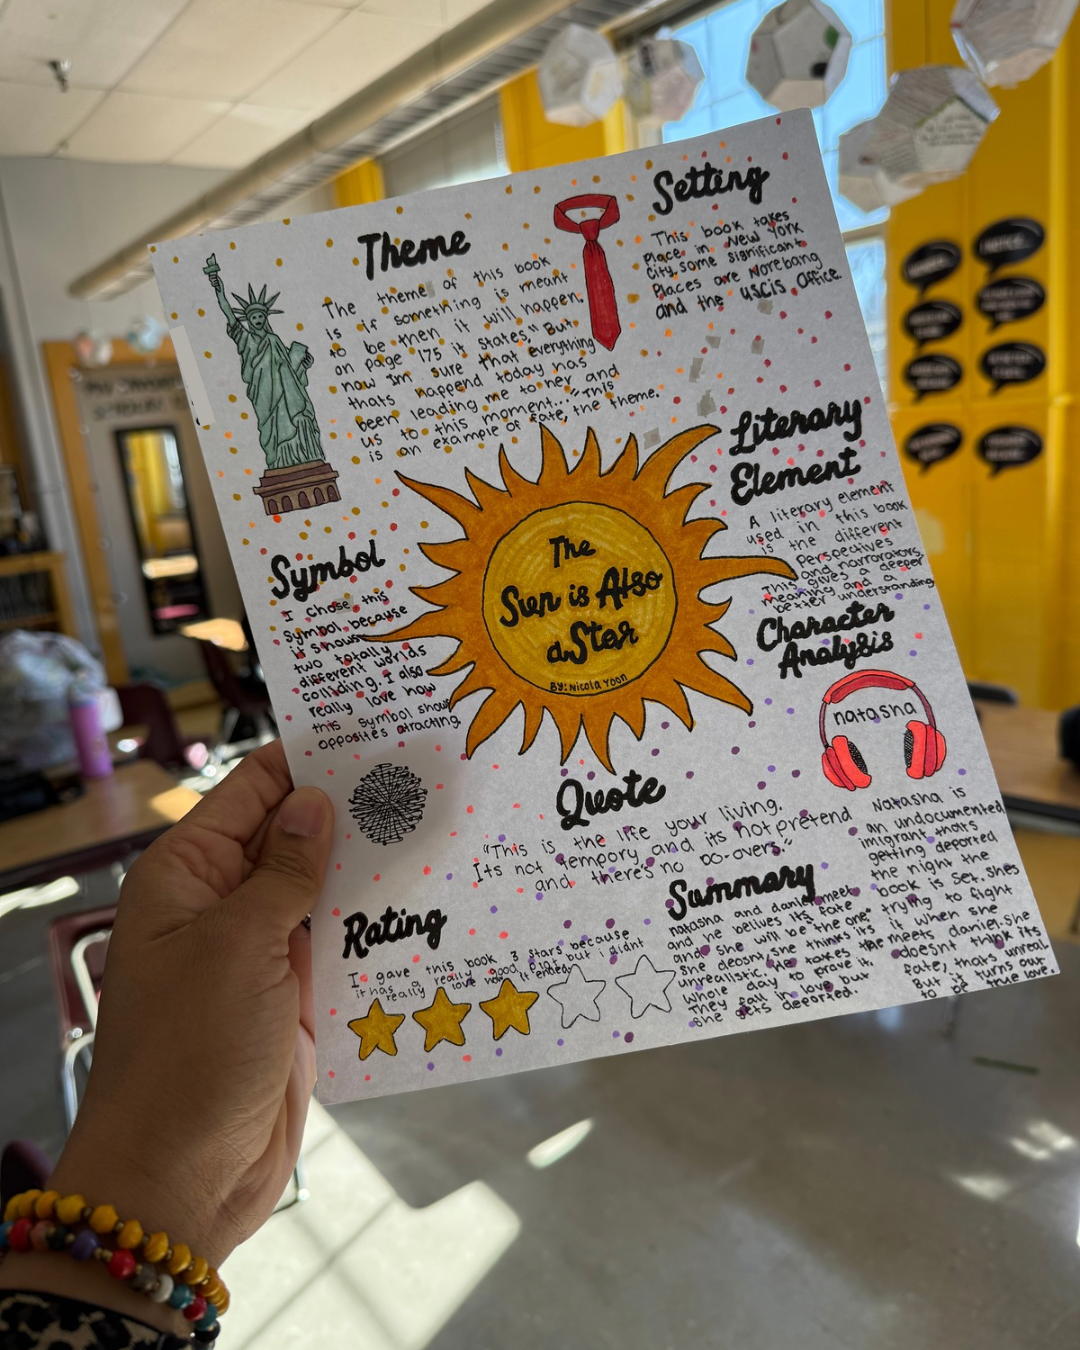 Theme
The theme of this book
is if something is meant
to be then it will happen.
on page 175 it states," But
now Im sure that everything
thats happend today has
been leading me to her and
us to this moment..." This
is an example of fate, the theme.
Setting
This book takes
Place in New York
City. some significant
Places are Norebang
and the USCIS Office.
Literary
Element
A literary element
used in this book
is the different
Perspectives
and narrorators,
This gives a deeper
meaning and a
better understanding
Symbol
I chose this
Symbol because
it shows
two totally
different worlds
colliding. I also
really love how
this symbol shows
opposites atracting.
The
Sun is Also
a Star
By: Nicola Yoon
Character
Analysis
natasha
Natasha is
an undocumented
imigrant thats
getting deported
the night the
book is set. Shes
trying to fight
it when she
meets daniel. She
doesnt think its
fate, thats unreal.
But it turns out
to be true love.
Quote
"This is the life your living.
Its not tempory and its not pretend
and there's no Do-overs."
Rating
I gave this book 3 stars because
it has a really good plot but i didnt
really love how it ended.
Summary
natasha and daniel meet
and he belives its fate
and she will be "the one"
she deosnt, she thinks its
unrealistic. He takes the
whole day to prove it.
They fall in love but
she gets deported.